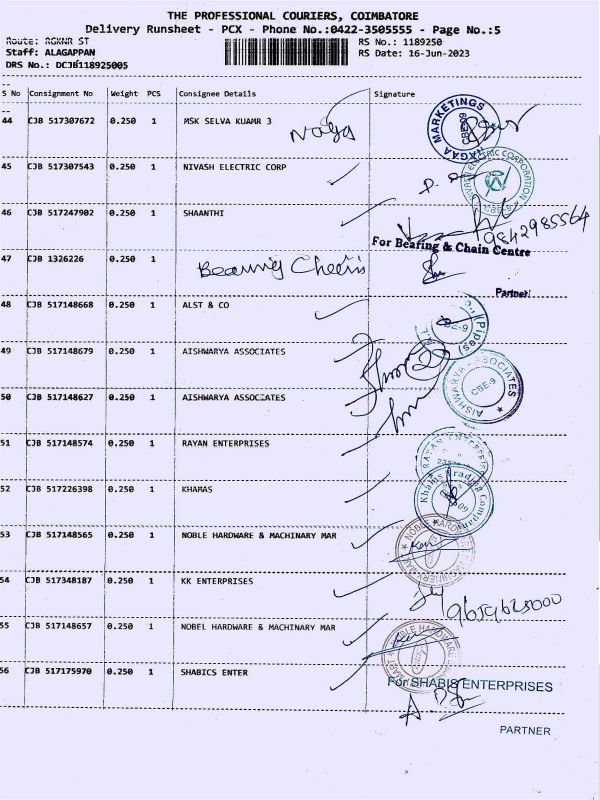 THE PROFESSIONAL COURIERS, COIMBATORE
Delivery Runsheet - PCX - Phone No.:0422-3505555 - Page No.:5
Route: RGKNR ST
RS No.: 1189250
Staff: ALAGAPPAN
RS Date: 16-Jun-2023
DRS No.: DCJB118925005
S No Consignment No Weight PCS Consignee Details Signature
44 CJB 517307672 0.250 1 MSK SELVA KUAMR 3
MARKETINGS
45 CJB 517307543 0.250 1 NIVASH ELECTRIC CORP
NIVASH ELECTRIC CORPORATION
46 CJB 517247902 0.250 1 SHAANTHI
9842985564
For Bearing & Chain Centre
47 CJB 1326226 0.250 1
Partner
48 CJB 517148668 0.250 1 ALST & CO
CBE-9 (Pipes)
49 CJB 517148679 0.250 1 AISHWARYA ASSOCIATES
AISHWARYA ASSOCIATES CBE-9
50 CJB 517148687 0.250 1 AISHWARYA ASSOCIATES
51 CJB 517148574 0.250 1 RAYAN ENTERPRISES
RAYAN ENTERPRISE
52 CJB 517226398 0.250 1 KHAMAS
Khams Trading Company
53 CJB 517148565 0.250 1 NOBLE HARDWARE & MACHINARY MAR
54 CJB 517348187 0.250 1 KK ENTERPRISES
55 CJB 517148657 0.250 1 NOBEL HARDWARE & MACHINARY MAR
56 CJB 517175970 0.250 1 SHABICS ENTER
For SHABIS ENTERPRISES
PARTNER